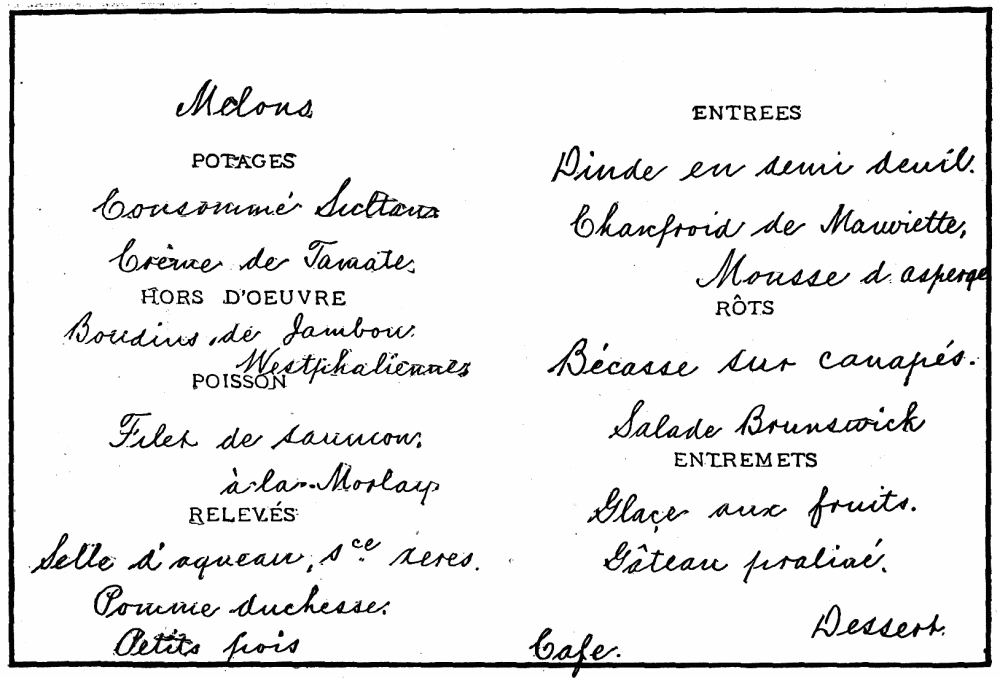 Melons
POTAGES
Consommé Sultans
Crème de Tamate.
HORS D'OEUVRE
Boudins de Jambon.
Westphaliennes
POISSON
Filet de saumon.
à la Morlay
RELEVÉS
Selle d'agneau, sce xeres.
Pomme duchesse.
Petits pois
ENTREES
Dinde en demi deuil.
Chaufroid de Mauviette,
Mousse d asperge
RÔTS
Bécasse sur canapés.
Salade Brunswick
ENTREMETS
Glaçe aux fruits.
Gâteau praliné.
Dessert.
Cafe.